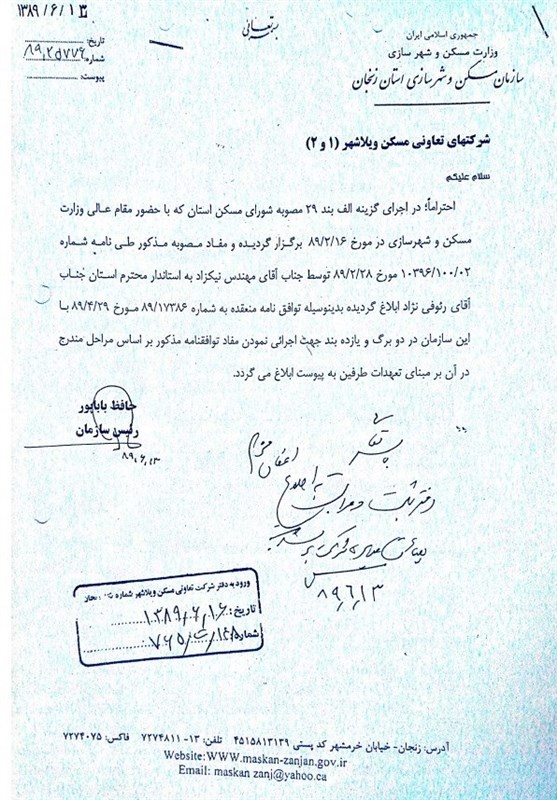 ۱۳۸۹/۶/۱۳
بسمه تعالی
جمهوری اسلامی ایران
وزارت مسکن و شهر سازی
سازمان مسکن و شهرسازی استان زنجان
تاریخ:
شماره: ۸۹،۲۵۷۷۶
پیوست:
شرکتهای تعاونی مسکن ویلاشهر (۱ و ۲)
سلام علیکم
احتراماً؛ در اجرای گزینه الف بند ۲۹ مصوبه شورای مسکن استان که با حضور مقام عالی وزارت
مسکن و شهرسازی در مورخ ۸۹/۲/۱۶ برگزار گردیده و مفاد مصوبه مذکور طی نامه شماره
۱۰۳۹۶/۱۰۰/۰۲ مورخ ۸۹/۲/۲۸ توسط جناب آقای مهندس نیکزاد به استاندار محترم استان جناب
آقای رئوفی نژاد ابلاغ گردیده بدینوسیله توافق نامه منعقده به شماره ۸۹/۱۷۳۸۶ مورخ ۸۹/۴/۲۹ با
این سازمان در دو برگ و یازده بند جهت اجرائی نمودن مفاد توافقنامه مذکور بر اساس مراحل مندرج
در آن بر مبنای تعهدات طرفین به پیوست ابلاغ می گردد.
حافظ باباپور
رئیس سازمان
۸۹،۶،۱۳
دفتر ثبت و
۸۹،۶،۱۳
ورود به دفتر شرکت تعاونی مسکن ویلاشهر شماره
تاریخ: ۱۳۸۹،۶،۱۶
شماره:
آدرس: زنجان- خیابان خرمشهر کد پستی ۴۵۱۵۸۱۳۱۳۹ تلفن: ۱۳- ۷۲۷۴۸۱۱ فاکس: ۷۲۷۴۰۷۵
Website:WWW.maskan-zanjan.gov.ir
Email: maskan zanj@yahoo.ca